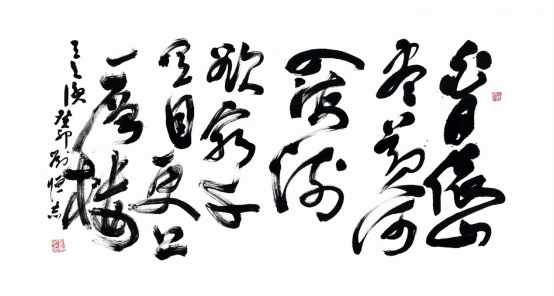 白日依山
尽黄河
入海流
欲穷千
里目更上
一层楼
王之涣 癸卯